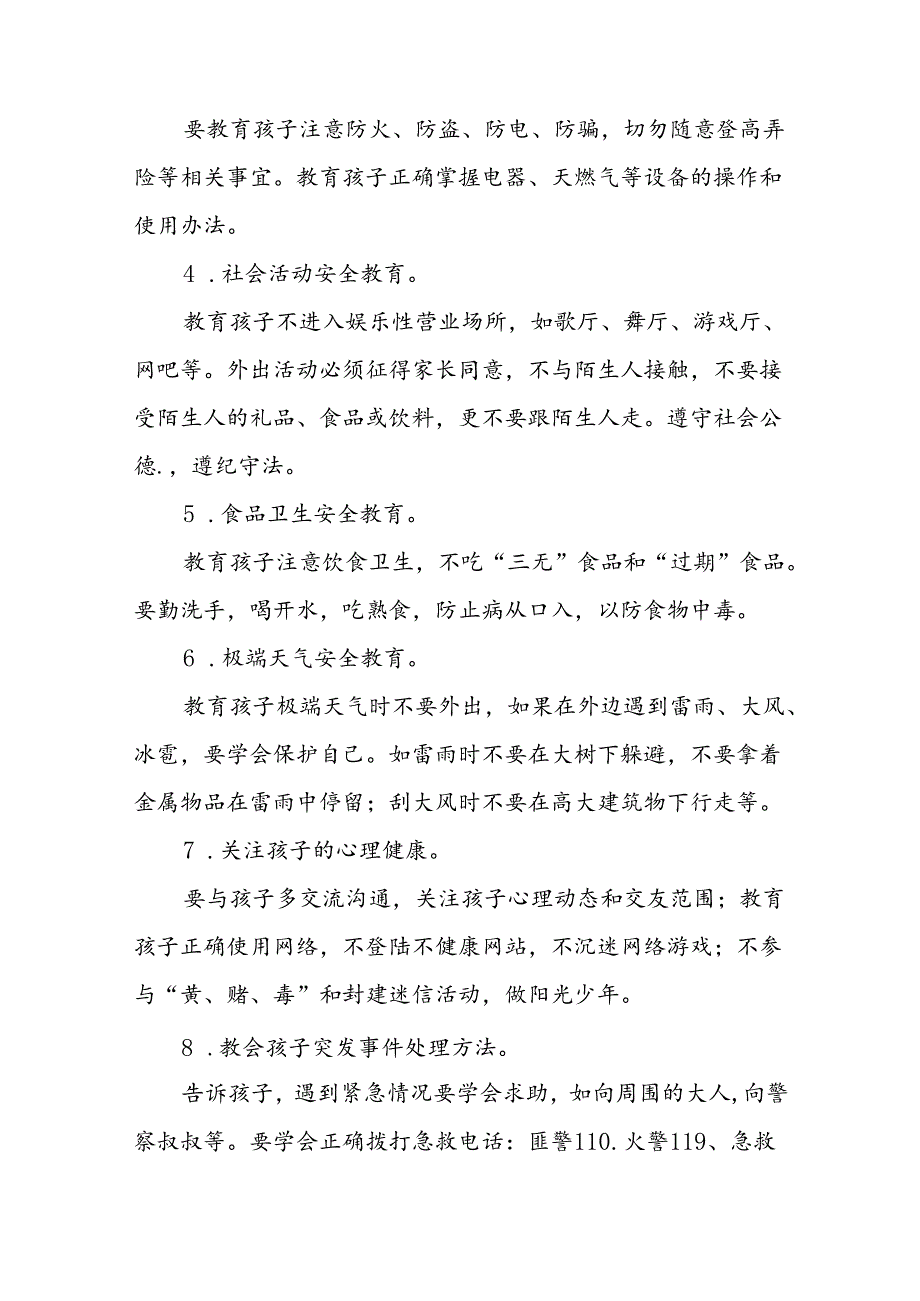 要教育孩子注意防火、防盗、防电、防骗，切勿随意登高弄
险等相关事宜。教育孩子正确掌握电器、天燃气等设备的操作和
使用办法。
4 .社会活动安全教育。
教育孩子不进入娱乐性营业场所，如歌厅、舞厅、游戏厅、
网吧等。外出活动必须征得家长同意，不与陌生人接触，不要接
受陌生人的礼品、食品或饮料，更不要跟陌生人走。遵守社会公
德.，遵纪守法。
5 .食品卫生安全教育。
教育孩子注意饮食卫生，不吃“三无”食品和“过期”食品。
要勤洗手，喝开水，吃熟食，防止病从口入，以防食物中毒。
6 .极端天气安全教育。
教育孩子极端天气时不要外出，如果在外边遇到雷雨、大风、
冰雹，要学会保护自己。如雷雨时不要在大树下躲避，不要拿着
金属物品在雷雨中停留；刮大风时不要在高大建筑物下行走等。
7 .关注孩子的心理健康。
要与孩子多交流沟通，关注孩子心理动态和交友范围；教育
孩子正确使用网络，不登陆不健康网站，不沉迷网络游戏；不参
与“黄、赌、毒”和封建迷信活动，做阳光少年。
8 .教会孩子突发事件处理方法。
告诉孩子，遇到紧急情况要学会求助，如向周围的大人,向警
察叔叔等。要学会正确拨打急救电话：匪警110.火警119、急救